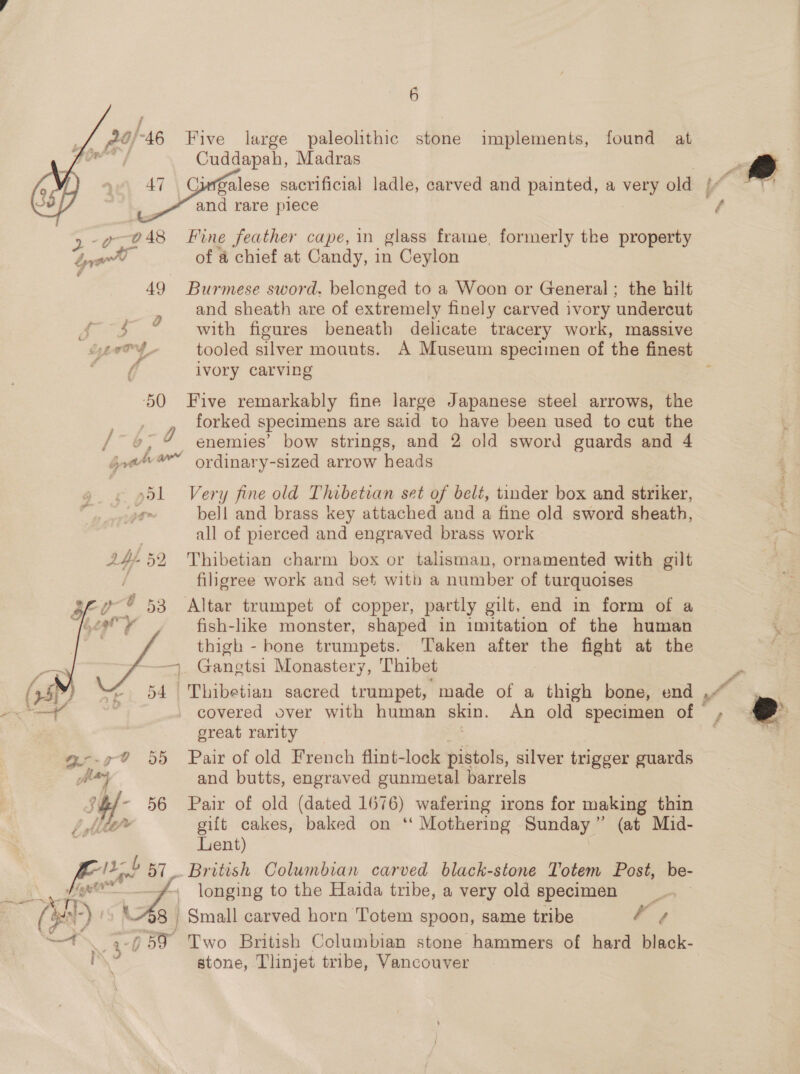 6
20/- 46 Five large paleolithic stone implements, found at
Cuddapah, Madras
47 Cingalese sacrificial ladle, carved and painted, a very old
and rare piece
48 Fine feather cape, in glass frame, formerly the property
of a chief at Candy, in Ceylon
49 Burmese sword, belonged to a Woon or General; the hilt
and sheath are of extremely finely carved ivory undercut
with figures beneath delicate tracery work, massive
tooled silver mounts. A Museum specimen of the finest
ivory carving
50 Five remarkably fine large Japanese steel arrows, the
forked specimens are said to have been used to cut the
enemies' bow strings, and 2 old sword guards and 4
ordinary-sized arrow heads
51 Very fine old Thibetian set of belt, tinder box and striker,
bell and brass key attached and a fine old sword sheath,
all of pierced and engraved brass work
24/- 52 Thibetian charm box or talisman, ornamented with gilt
filigree work and set with a number of turquoises
53 Altar trumpet of copper, partly gilt, end in form of a
fish-like monster, shaped in imitation of the human
thigh-bone trumpets. Taken after the fight at the
Gangtsi Monastery, Thibet
54 Thibetian sacred trumpet, made of a thigh bone, end
covered over with human skin. An old specimen of
great rarity
55 Pair of old French flint-lock pistols, silver trigger guards
and butts, engraved gunmetal barrels
56 Pair of old (dated 1676) wafering irons for making thin
gift cakes, baked on "Mothering Sunday" (at Mid-
Lent)
57 British Columbian carved black-stone Totem Post, be-
longing to the Haida tribe, a very old specimen
58 Small carved horn Totem spoon, same tribe
59 Two British Columbian stone hammers of hard black-
stone, Tlinjet tribe, Vancouver